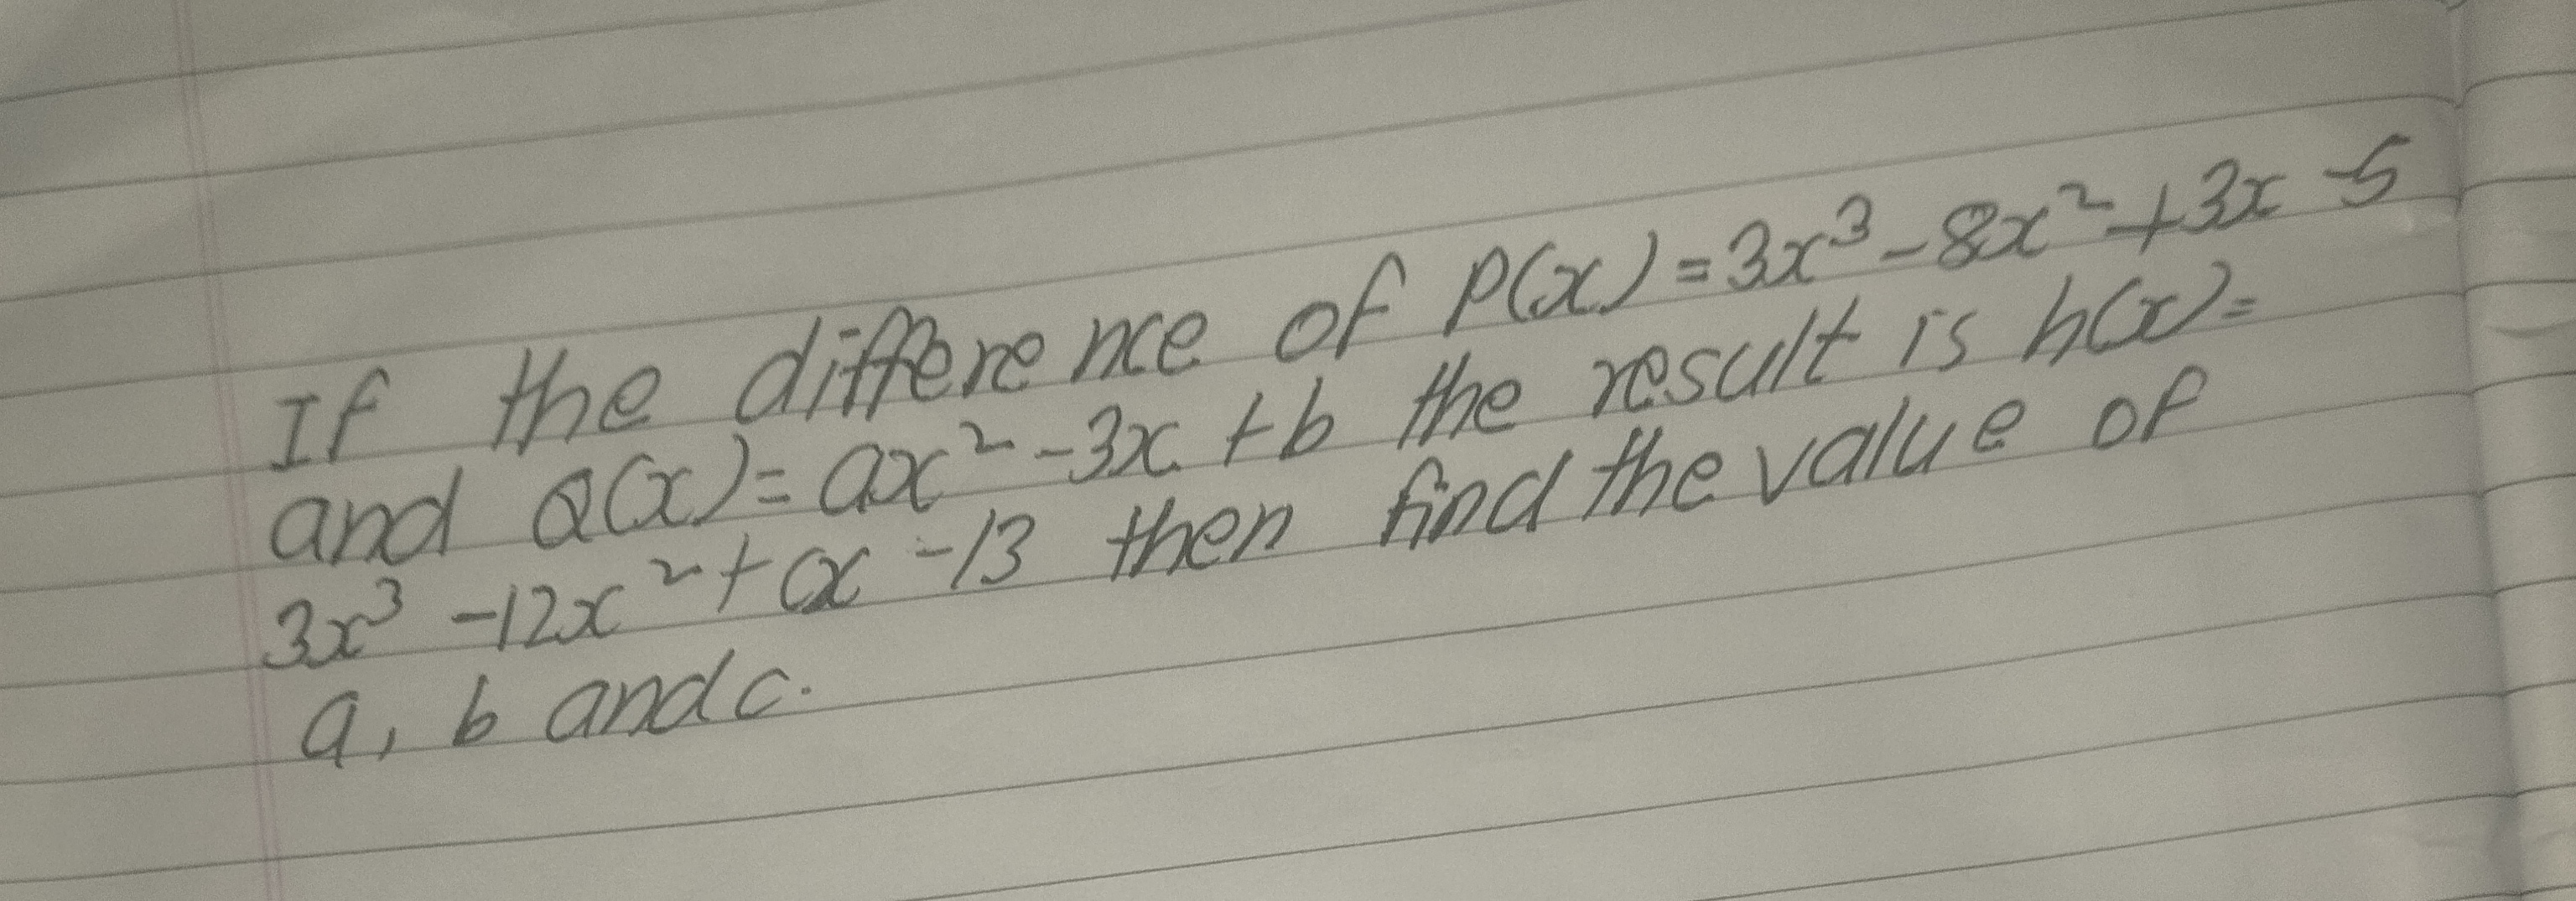 If the difference of P(x) = 3x³ - 8x² + 3x - 5
and Q(x) = ax² - 3x + b the result is h(x) =
3x³ - 12x² + cx - 13 then find the value of
a, b and c.